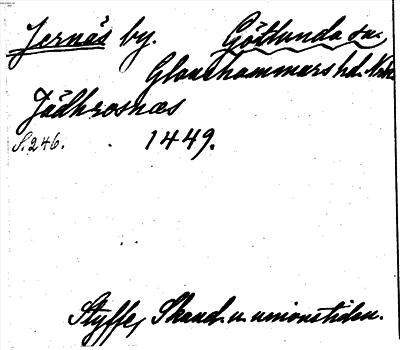 Jernäs by. Götlunda sn.
Glanshammars hd.
Jädhrosnæs
S.246. 1449.
Styffe, Skand. u. unionstiden.